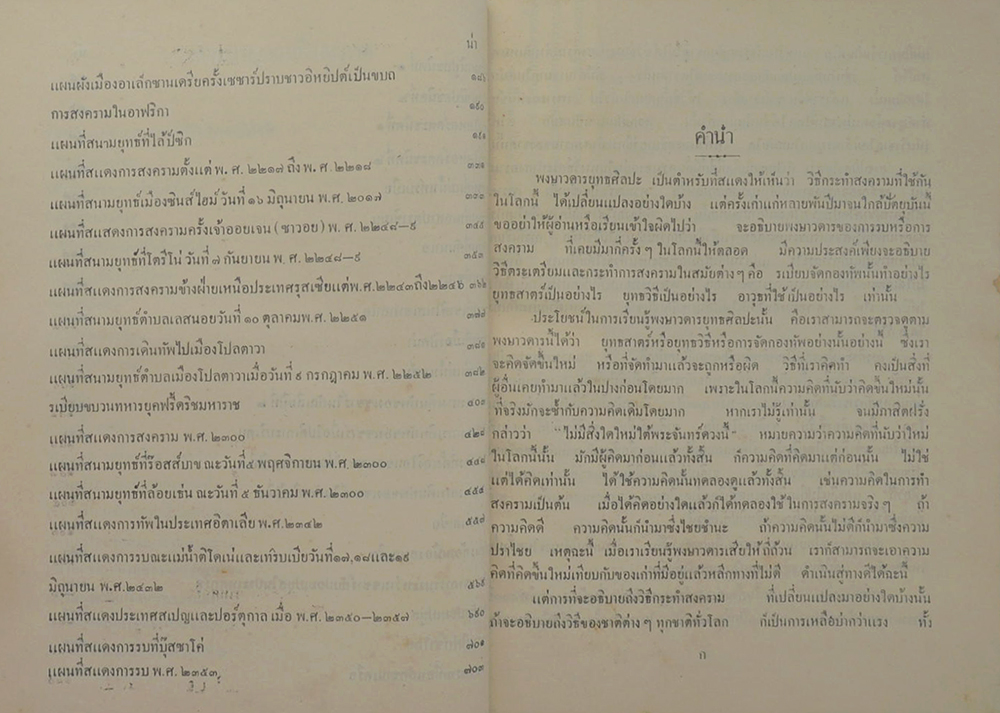 น่า
แผนผังเมืองอาเล็กซานเดรียครั้งเซซาร์ปราบชาวอิหยิปต์เป็นขบถ
การสงครามในอาฟริกา ๑๙๐
แผนที่สนามยุทธ์ที่ไล้ป์ซิก
แผนที่สแดงการสงครามตั้งแต่ พ. ศ. ๒๒๑๗ ถึง พ. ศ. ๒๒๑๘
แผนที่สนามยุทธ์เมืองซินส์ไฮม์ วันที่ ๑๖ มิถุนายน พ.ศ. ๒๐๑๗
แผนที่สแสดงการสงครามครั้งเจ้าออยเจน (ซาวอย) พ. ศ. ๒๒๔๘—๙
แผนที่สนามยุทธ์ที่โตรีโน่ วันที่ ๗ กันยายน พ. ศ. ๒๒๔๘—๙ ๓๕๓
แผนที่สแดงการสงครามข้างฝ่ายเหนือประเทศรุสเซียแต่พ.ศ.๒๒๔๓ถึง๒๒๕๖ ๓๖๒
แผนที่สนามยุทธ์ตำบลเลสนอยวันที่ ๑๐ ตุลาคมพ.ศ. ๒๒๕๑
แผนที่สแดงการเดินทัพไปเมืองโปลตาวา ๓๘๑
แผนที่สนามยุทธ์ตำบลเมืองโปลตาวาเมื่อวันที่ ๙ กรกฎาคม พ.ศ. ๒๒๕๒ ๓๘๒
รเบียบขบวนทหารยุคฟริ้ดริชมหาราช
แผนที่สแดงการสงคราม พ.ศ. ๒๓๐๐
แผนที่สนามยุทธ์ที่ร๊อสส์บาข ณะวันที่๕ พฤศจิกายน พ.ศ. ๒๓๐๐
แผนที่สนามยุทธ์ที่ล้อยเธ่น ณะวันที่ ๕ ธันวาคม พ.ศ. ๒๓๐๐
แผนที่สแดงการทัพในประเทศอิตาเลีย พ.ศ.๒๓๔๒
แผนที่สแดงการรบณะแม่น้ำติโดเน่และเทริบเบียวันที่๑๗,๑๘และ๑๙
มิถุนายน พ.ศ.๒๔๓๒
แผนที่สแดงประเทศสเปญและปอร์ตุกาล เมื่อ พ.ศ. ๒๓๕๐—๒๓๕๗ ๖๙๐
แผนที่สแดงการรบที่บุ๊สซาโค่
แผนที่สแดงการรบ พ.ศ. ๒๓๕๓ ๗๐๙
คำนำ
พงษาวดารยุทธศิลปะ เป็นตำหรับที่สแดงให้เห็นว่า วิธีกระทำสงครามที่ใช้กัน
ในโลกนี้ ได้เปลี่ยนแปลงอย่างใดบ้าง แต่ครั้งเก่าแก่หลายพันปีมาจนใกล้ปัตยุบันนี้
ขออย่าให้ผู้อ่านหรือเรียนเข้าใจผิดไปว่า จะอธิบายพงษาวดารของการรบหรือการ
สงคราม ที่เคยมีมากี่ครั้ง ๆ ในโลกนี้ให้ตลอด มีความประสงค์เพียงจะอธิบาย
วิธีตระเตรียมและกระทำการสงครามในสมัยต่าง ๆ คือ รเบียบจัดกองทัพนั้นทำอย่างไร
ยุทธสาตร์เป็นอย่างไร ยุทธวิธีเป็นอย่างไร อาวุธที่ใช้เป็นอย่างไร เท่านั้น
ประโยชน์ในการเรียนรู้พงษาวดารยุทธศิลปะนั้น คือเราสามารถจะตรวจดูตาม
พงษาวดารนี้ได้ว่า ยุทธสาตร์หรือยุทธวิธีหรือการจัดกองทัพอย่างนั้นอย่างนี้ ซึ่งเรา
จะคิดจัดขึ้นใหม่ หรือที่จัดทำมาแล้วจะถูกหรือผิด วิธีที่เราคิดทำ คงเป็นสิ่งที่
ผู้อื่นเคยทำมาแล้วในปางก่อนโดยมาก เพราะในโลกนี้ความคิดที่นับว่าคิดขึ้นใหม่นั้น
ที่จริงมักจะซ้ำกับความคิดเดิมโดยมาก หากเราไม่รู้เท่านั้น จนมีภาสิตฝรั่ง
กล่าวว่า "ไม่มีสิ่งใดใหม่ใต้พระจันทร์ดวงนี้" หมายความว่าความคิดที่นับว่าใหม่
ในโลกนี้นั้น มักมีผู้คิดมาก่อนแล้วทั้งสิ้น ก็ความคิดที่คิดมาแต่ก่อนนั้น ไม่ใช่
แต่ได้คิดเท่านั้น ได้ใช้ความคิดนั้นทดลองดูแล้วทั้งสิ้น เช่นความคิดในการทำ
สงครามเป็นต้น เมื่อได้คิดอย่างใดแล้วก็ได้ทดลองใช้ ในการสงครามจริง ๆ ถ้า
ความคิดดี ความคิดนั้นก็นำมาซึ่งไชยชำนะ ถ้าความคิดนั้นไม่ดีก็นำมาซึ่งความ
ปราไชย เหตุฉะนี้ เมื่อเราเรียนรู้พงษาวดารเสียให้ถี่ถ้วน เราก็สามารถจะเอาความ
คิดที่คิดขึ้นใหม่เทียบกับของเก่าที่มีอยู่แล้วหลีกทางที่ไม่ดี ดำเนินสู่ทางดีได้ฉะนี้
แต่การที่จะอธิบายถึงวิธีกระทำสงคราม ที่เปลี่ยนแปลงมาอย่างใดบ้างนั้น
ถ้าจะอธิบายถึงวิธีของชาติต่าง ๆ ทุกชาติทั่วโลก ก็เป็นการเหลือบ่ากว่าแรง ทั้ง
ก